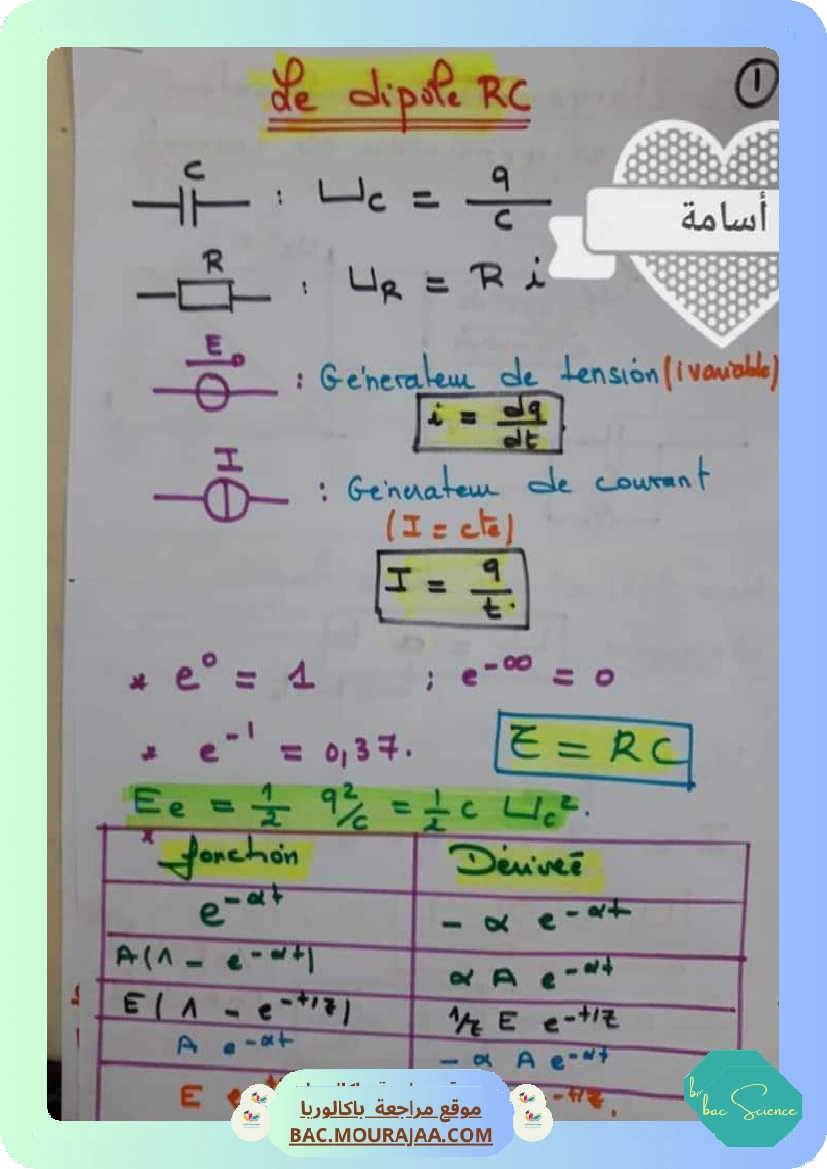 Le dipole RC
1
أسامة
C : Uc = q/C
R : UR = R i
E : Génerateur de tension (i variable)
i = dq/dt
I : Génerateur de courant
(I = cte)
I = q/t
* e⁰ = 1 ; e^-∞ = 0
* e^-1 = 0,37.
τ = RC
Ee = 1/2 q²/c = 1/2 c Uc².
* fonction | Dériveé
e^-αt | - α e^-αt
A(1 - e^-αt) | α A e^-αt
E(1 - e^-t/τ) | 1/τ E e^-t/τ
A e^-αt | - α A e^-αt
E
موقع مراجعة باكالوريا
BAC.MOURAJAA.COM
bac Science